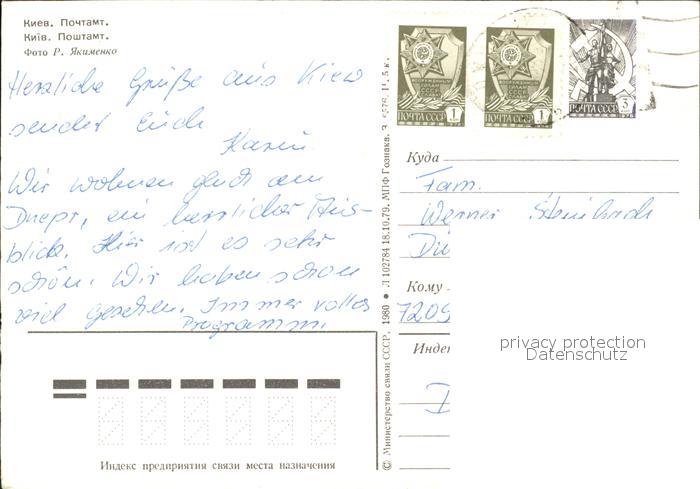 Киев. Почтамт.
Київ. Поштамт.
Фото Р. Якименко
Herzliche Grüße aus Kiew
sendet Euch
Karin.
Wir wohnen gleich am
Dnepr, ein herrlicher Aus-
blick. Hier ist es sehr
schön. Wir haben schon
viel gesehen. Immer volles
Programm.
Индекс предприятия связи места назначения
© Министерство связи СССР, 1980 ● Л 102784 18.10.79. МПФ Гознака. Ц. 5 к.
1
ПОЧТА СССР
1
ПОЧТА СССР
3
ПОЧТА СССР
Куда
Fam.
Werner Steinbach
Кому
7209
Индек
privacy protection
Datenschutz